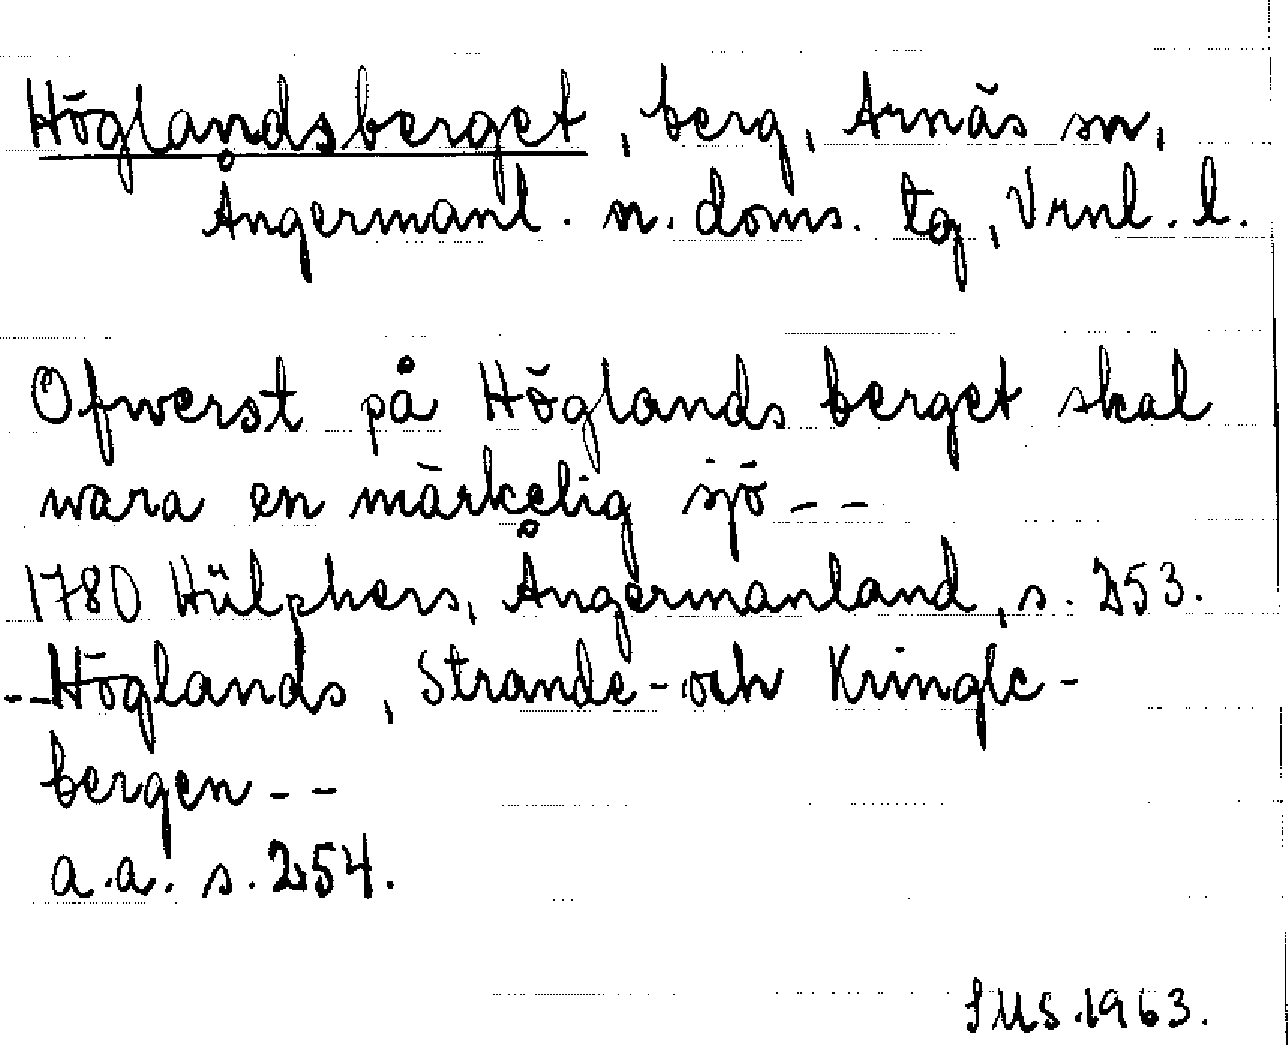 Höglandsberget, berg, Arnäs sn,
Ångermanl. n. doms. tg, Vrnl. l.
Ofwerst på Höglands berget skal
wara en märkelig sjö--
1780 Hülphers, Ångermanland, s. 253.
--Höglands, Strande- och Kringle-
bergen--
a.a. s. 254.
SMS.1963.